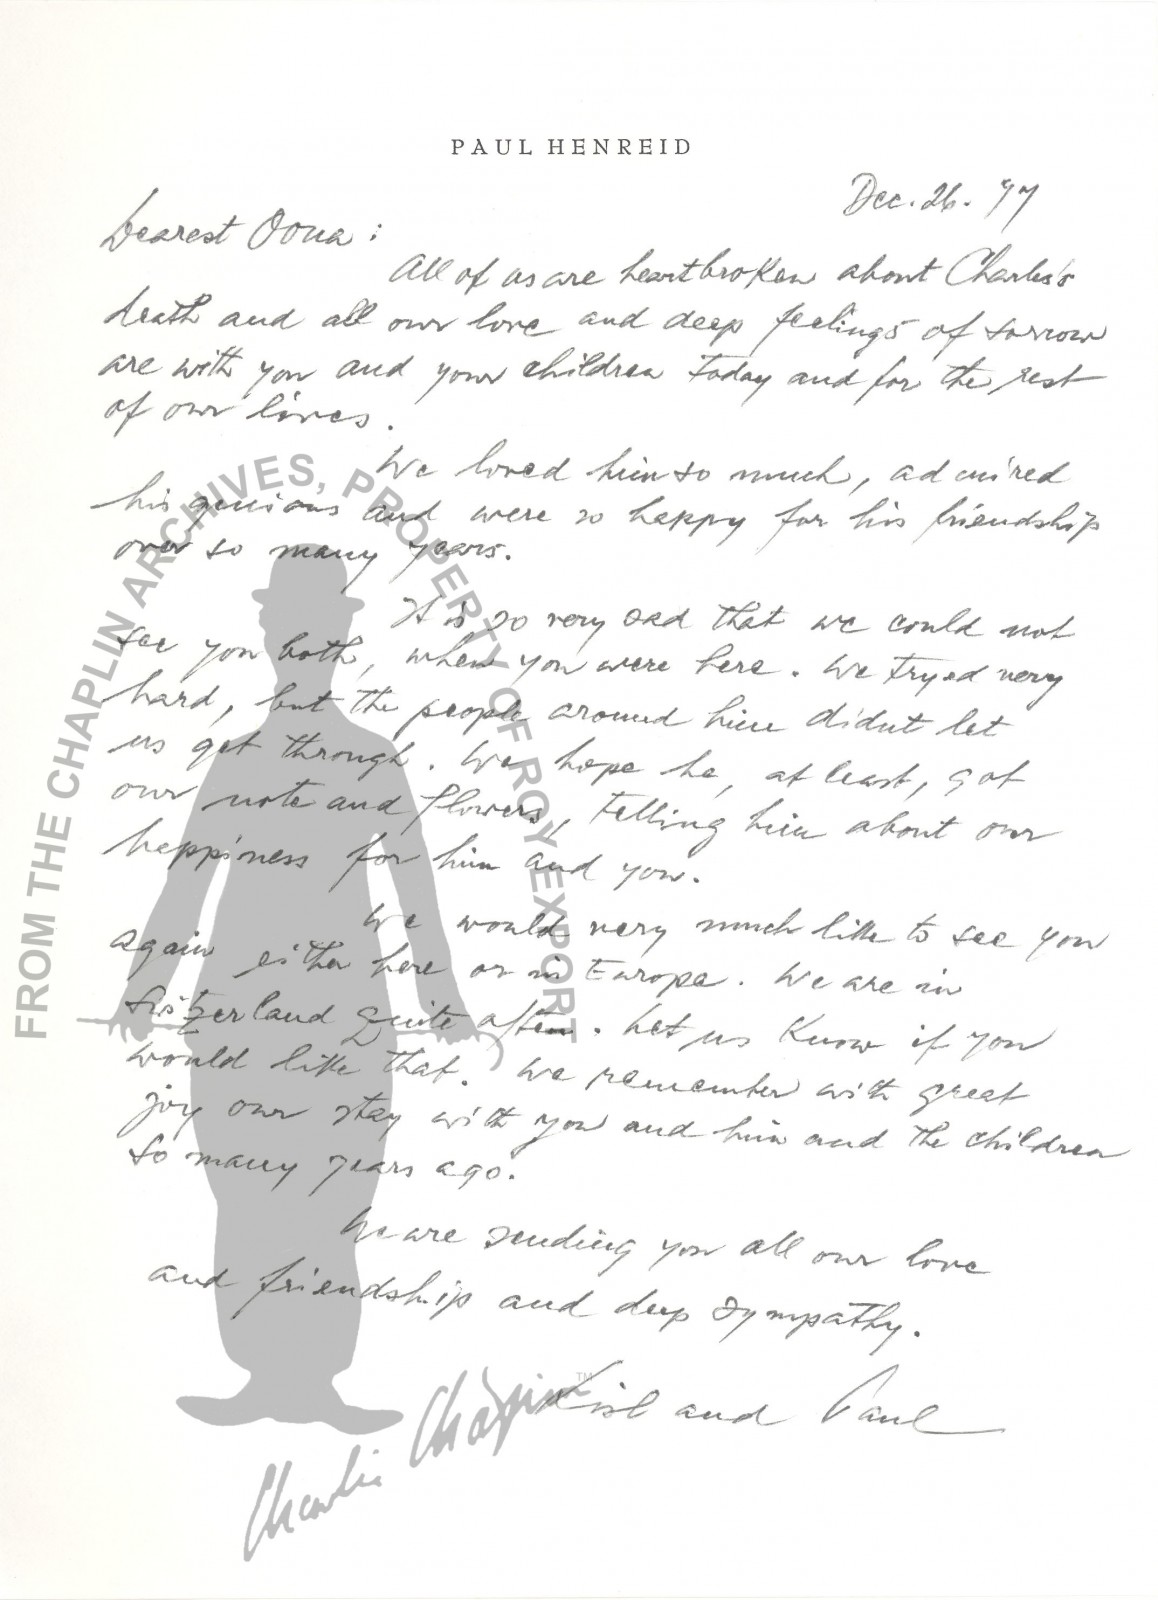 PAUL HENREID
Dec. 26. 77
Dearest Oona :
All of us are heartbroken about Charlie's
death and all our love and deep feelings of sorrow
are with you and your children today and for the rest
of our lives.
We loved him so much, admired
his genious and were so happy for his friendship
over so many years.
It is so very sad that we could not
see you both, when you were here. We tryed very
hard, but the people around him didnt let
us get through. We hope he, at least, got
our note and flowers, telling him about our
happiness for him and you.
We would very much like to see you
again either here or in Europe. We are in
quite often. Let us know if you
would like that. We remember with great
joy our stay with you and him and the children
so many years ago.
We are sending you all our love
and friendship and deep sympathy.
Lisl and Paul
FROM THE CHAPLIN ARCHIVES, PROPERTY OF ROY EXPORT
Charlie Chaplin™